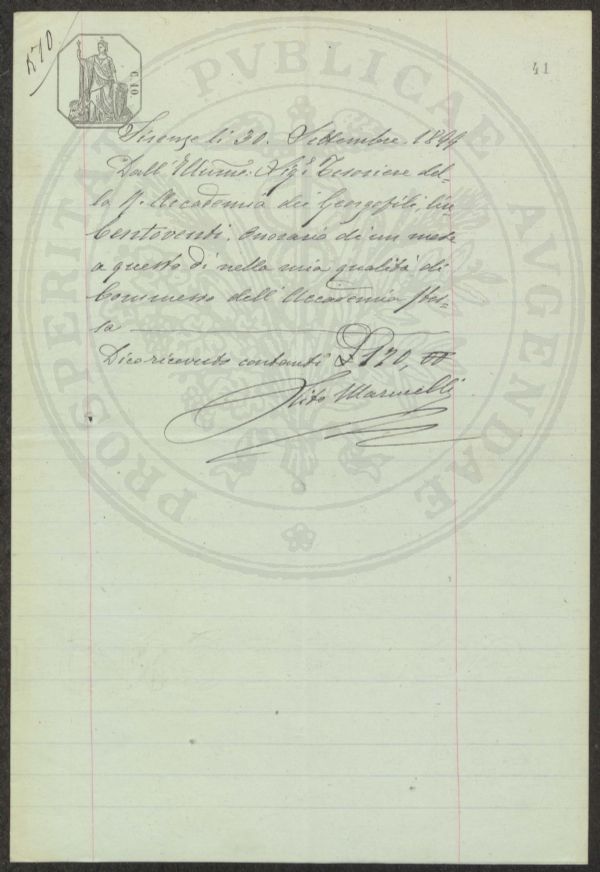 C. 10
41
PROSPERITATI PVBLICAE AVGENDAE
Firenze li 30. Settembre. 1899
Dall'Illmo. Sigr Tesoriere del-
la R. Accademia dei Georgofili, Lire
Centoventi. Onorario di un mese
a questo dì nella mia qualità di
Commesso dell'Accademia stes-
sa
Dico ricevuto contanti £ 120,00
Marinelli